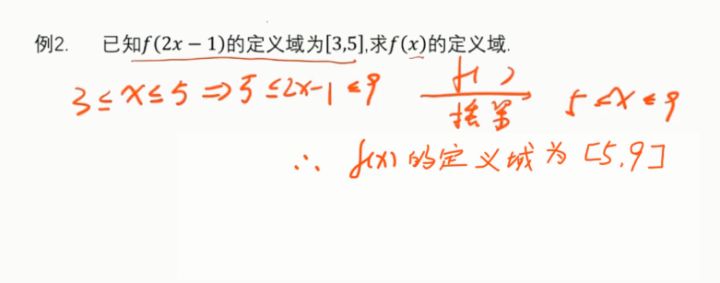 例2. 已知f(2x − 1)的定义域为[3,5],求f(x)的定义域.
3≤x≤5 ⇒ 5≤2x-1≤9 f( ) 5≤x≤9
括号
∴ f(x) 的定义域为 [5,9]